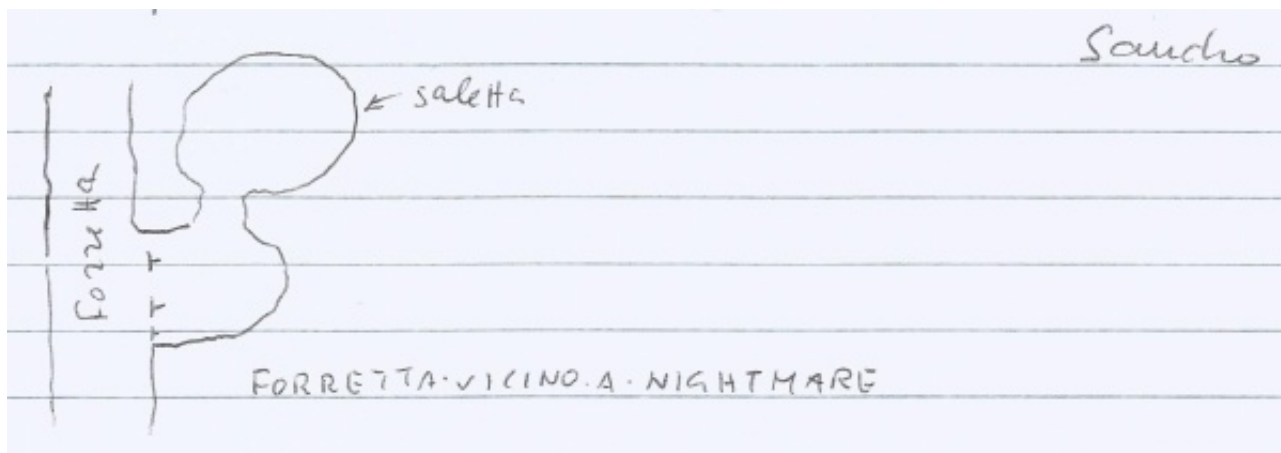 Sandro
saletta
forretta
FORRETTA·VICINO·A·NIGHTMARE